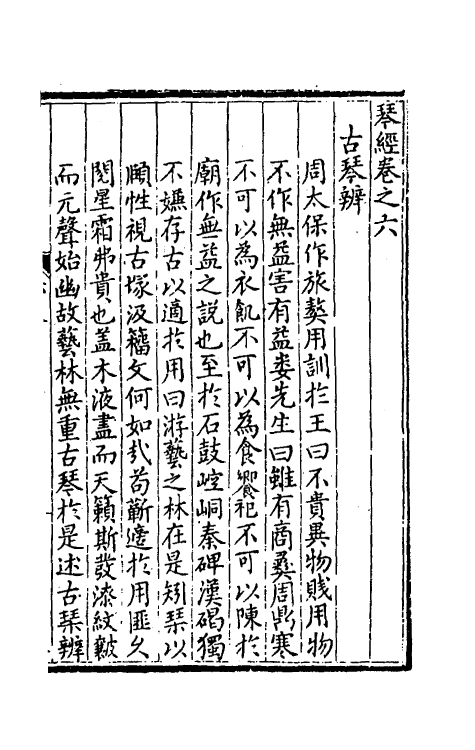 琴經卷之六
古琴辨
周太保作旅獒用訓於王曰不貴異物賤用物
不作無益害有益婁先生曰雖有商彝周鼎寒
不可以為衣飢不可以為食饗祀不可以陳於
廟作無益之說也至於石鼓崆峒秦碑漢碣獨
不嫌存古以適於用曰游藝之林在是矧琴以
頤性視古塚汲籀文何如哉苟蘄適於用匪久
閱星霜弗貴也盖木液盡而天籟斯發漆紋皷
而元聲始幽故藝林無重古琴於是述古琹辨